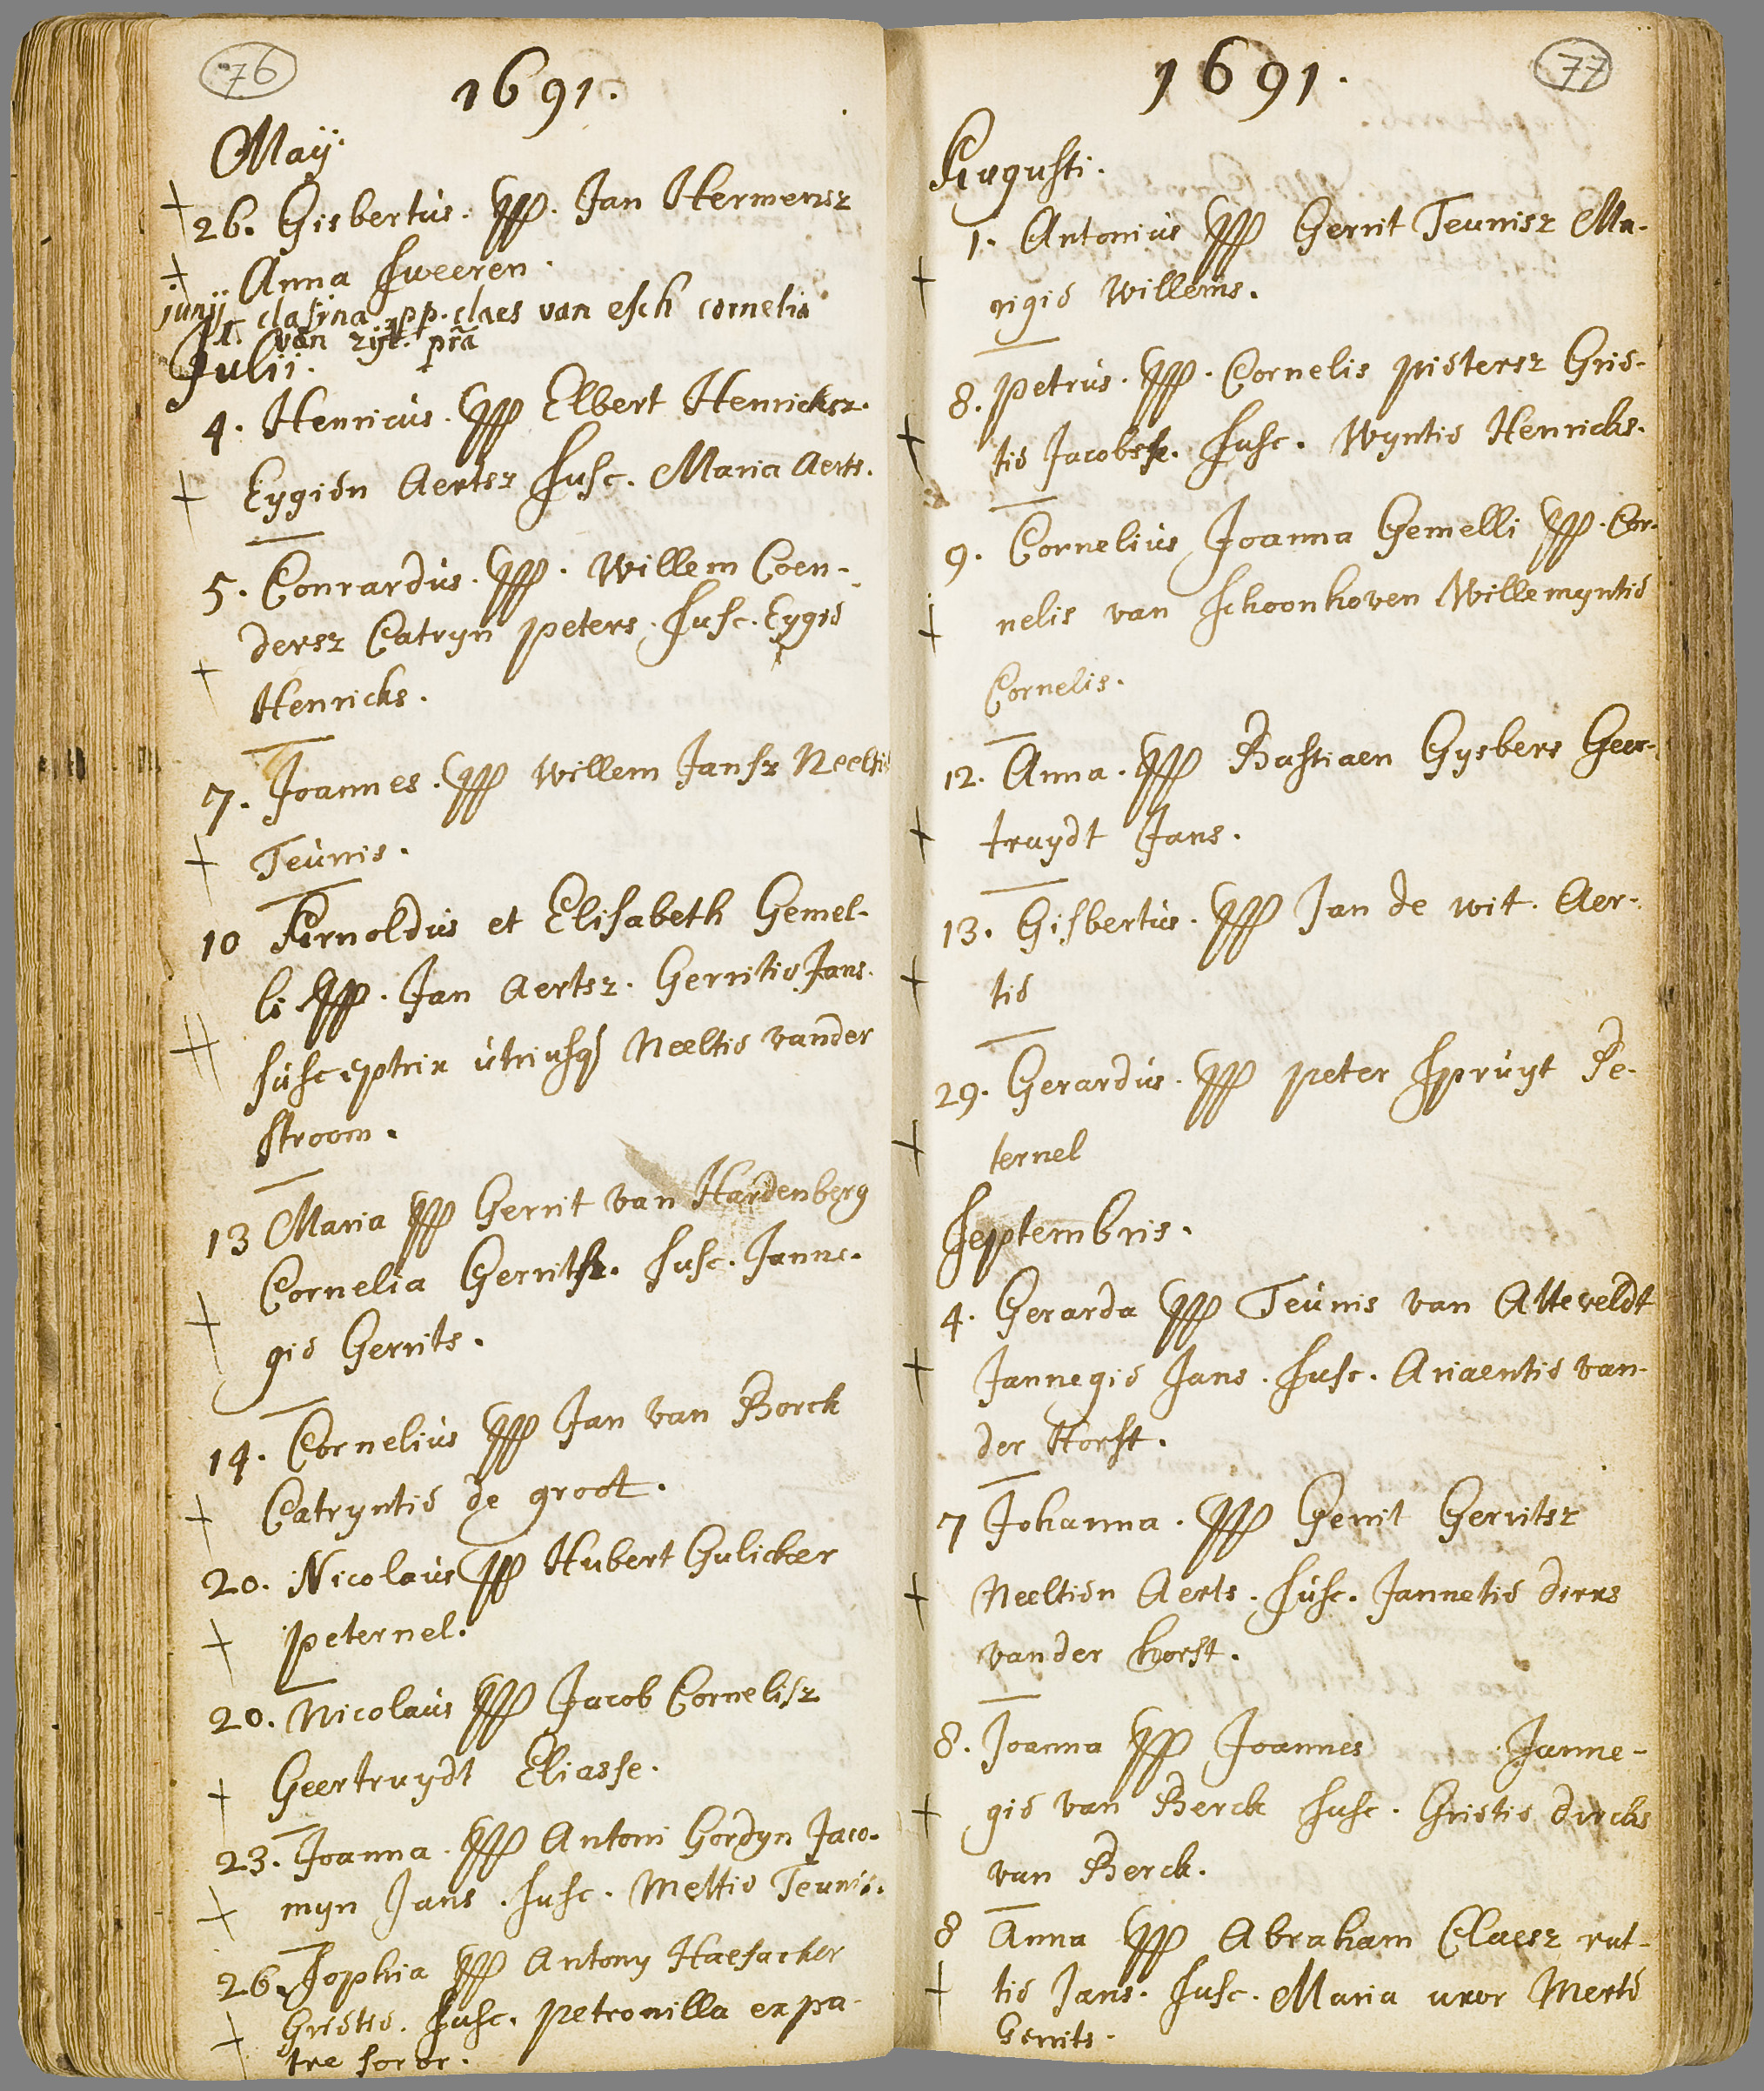 76
1691.
Maij.
26. Gisbertus. PP. Jan Hermensz
Anna Sweeren.
junij clasina pp. claes van esch cornelia
van zijt. pra
Julii.
4. Henricus. PP Elbert Henricksz.
Eygien Aertsz Susc. Maria Aerts.
5. Conrardus. PP. Willem Coen-
dersz Catryn peters. Susc. Eygie
Henricks.
7. Joannes. PP Willem Jansz Neeltie
Teunis.
10 Arnoldus et Elisabeth Gemel-
li PP. Jan Aertsz. Gerritie Jans.
susceptrix utriusq Neeltie vander
stroom.
13 Maria PP Gerrit van Hardenberg
Cornelia Gerritse. Susc. Janne-
gie Gerrits.
14. Cornelius PP Jan van Borck
Catryntie de groot.
20. Nicolaus PP Hubert Gulicker
peternel.
20. Nicolaus PP Jacob Cornelisz
Geertruydt Eliasse.
23. Joanna. PP Antoni Gordyn Jaco-
myn Jans. Susc. Meltie Teunis.
26. Sophia PP Antony Haefacker
Grietie. Susc. petronilla ex pa-
tre soror.
77
1691.
Augusti.
1. Antonius PP Gerrit Teunisz Ma-
rigie Willems.
8. petrus. PP. Cornelis pietersz Grie-
tie Jacobse. Susc. Wyntie Henricks.
9. Cornelius Joanna Gemelli PP. Cor-
nelis van Schoonhoven Willemyntie
Cornelis.
12. Anna. PP Bastiaen Gysbers Geer-
truydt Jans.
13. Gisbertus. PP Jan de wit. Aer-
tie
29. Gerardus. PP peter Spruyt Pe-
ternel
Septembris.
4. Gerarda PP Teunis van Atteveldt
Jannegie Jans. Susc. Ariaentie van-
der Horst.
7 Johanna. PP Gerrit Gerritsz
Neeltien Aerts. Susc. Jannetie dirxs
vander horst.
8. Joanna PP Joannes Janne-
gie van Berck Susc. Grietie dircks
van Berck.
8 Anna PP Abraham Claesz rut-
tie Jans. Susc. Maria uxor Merte
Gerrits.